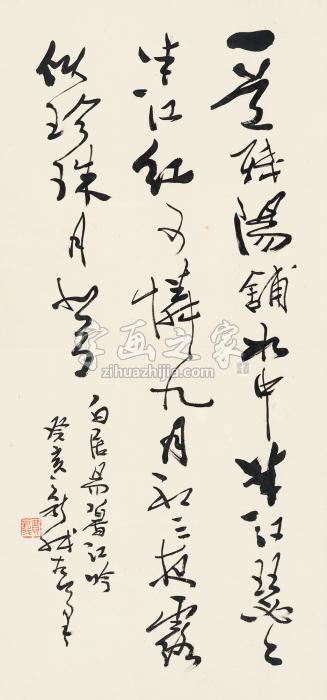 一道殘陽鋪水中半江瑟〻
半江紅可憐九月初三夜露
似珍珠月似弓
白居易暮江吟
癸亥
字画之家
www.zihuazhijia.com